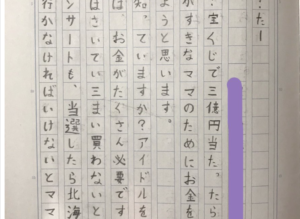 ?たー
?宝くじで三億円当たったら
がすきなママのためにお金を
ようと思います。
知っていますか?アイドルを
は、お金がたくさん必要です
はさいてい三まい買わないと
ンサートも、当選したら北海
行かなければいけないとママ